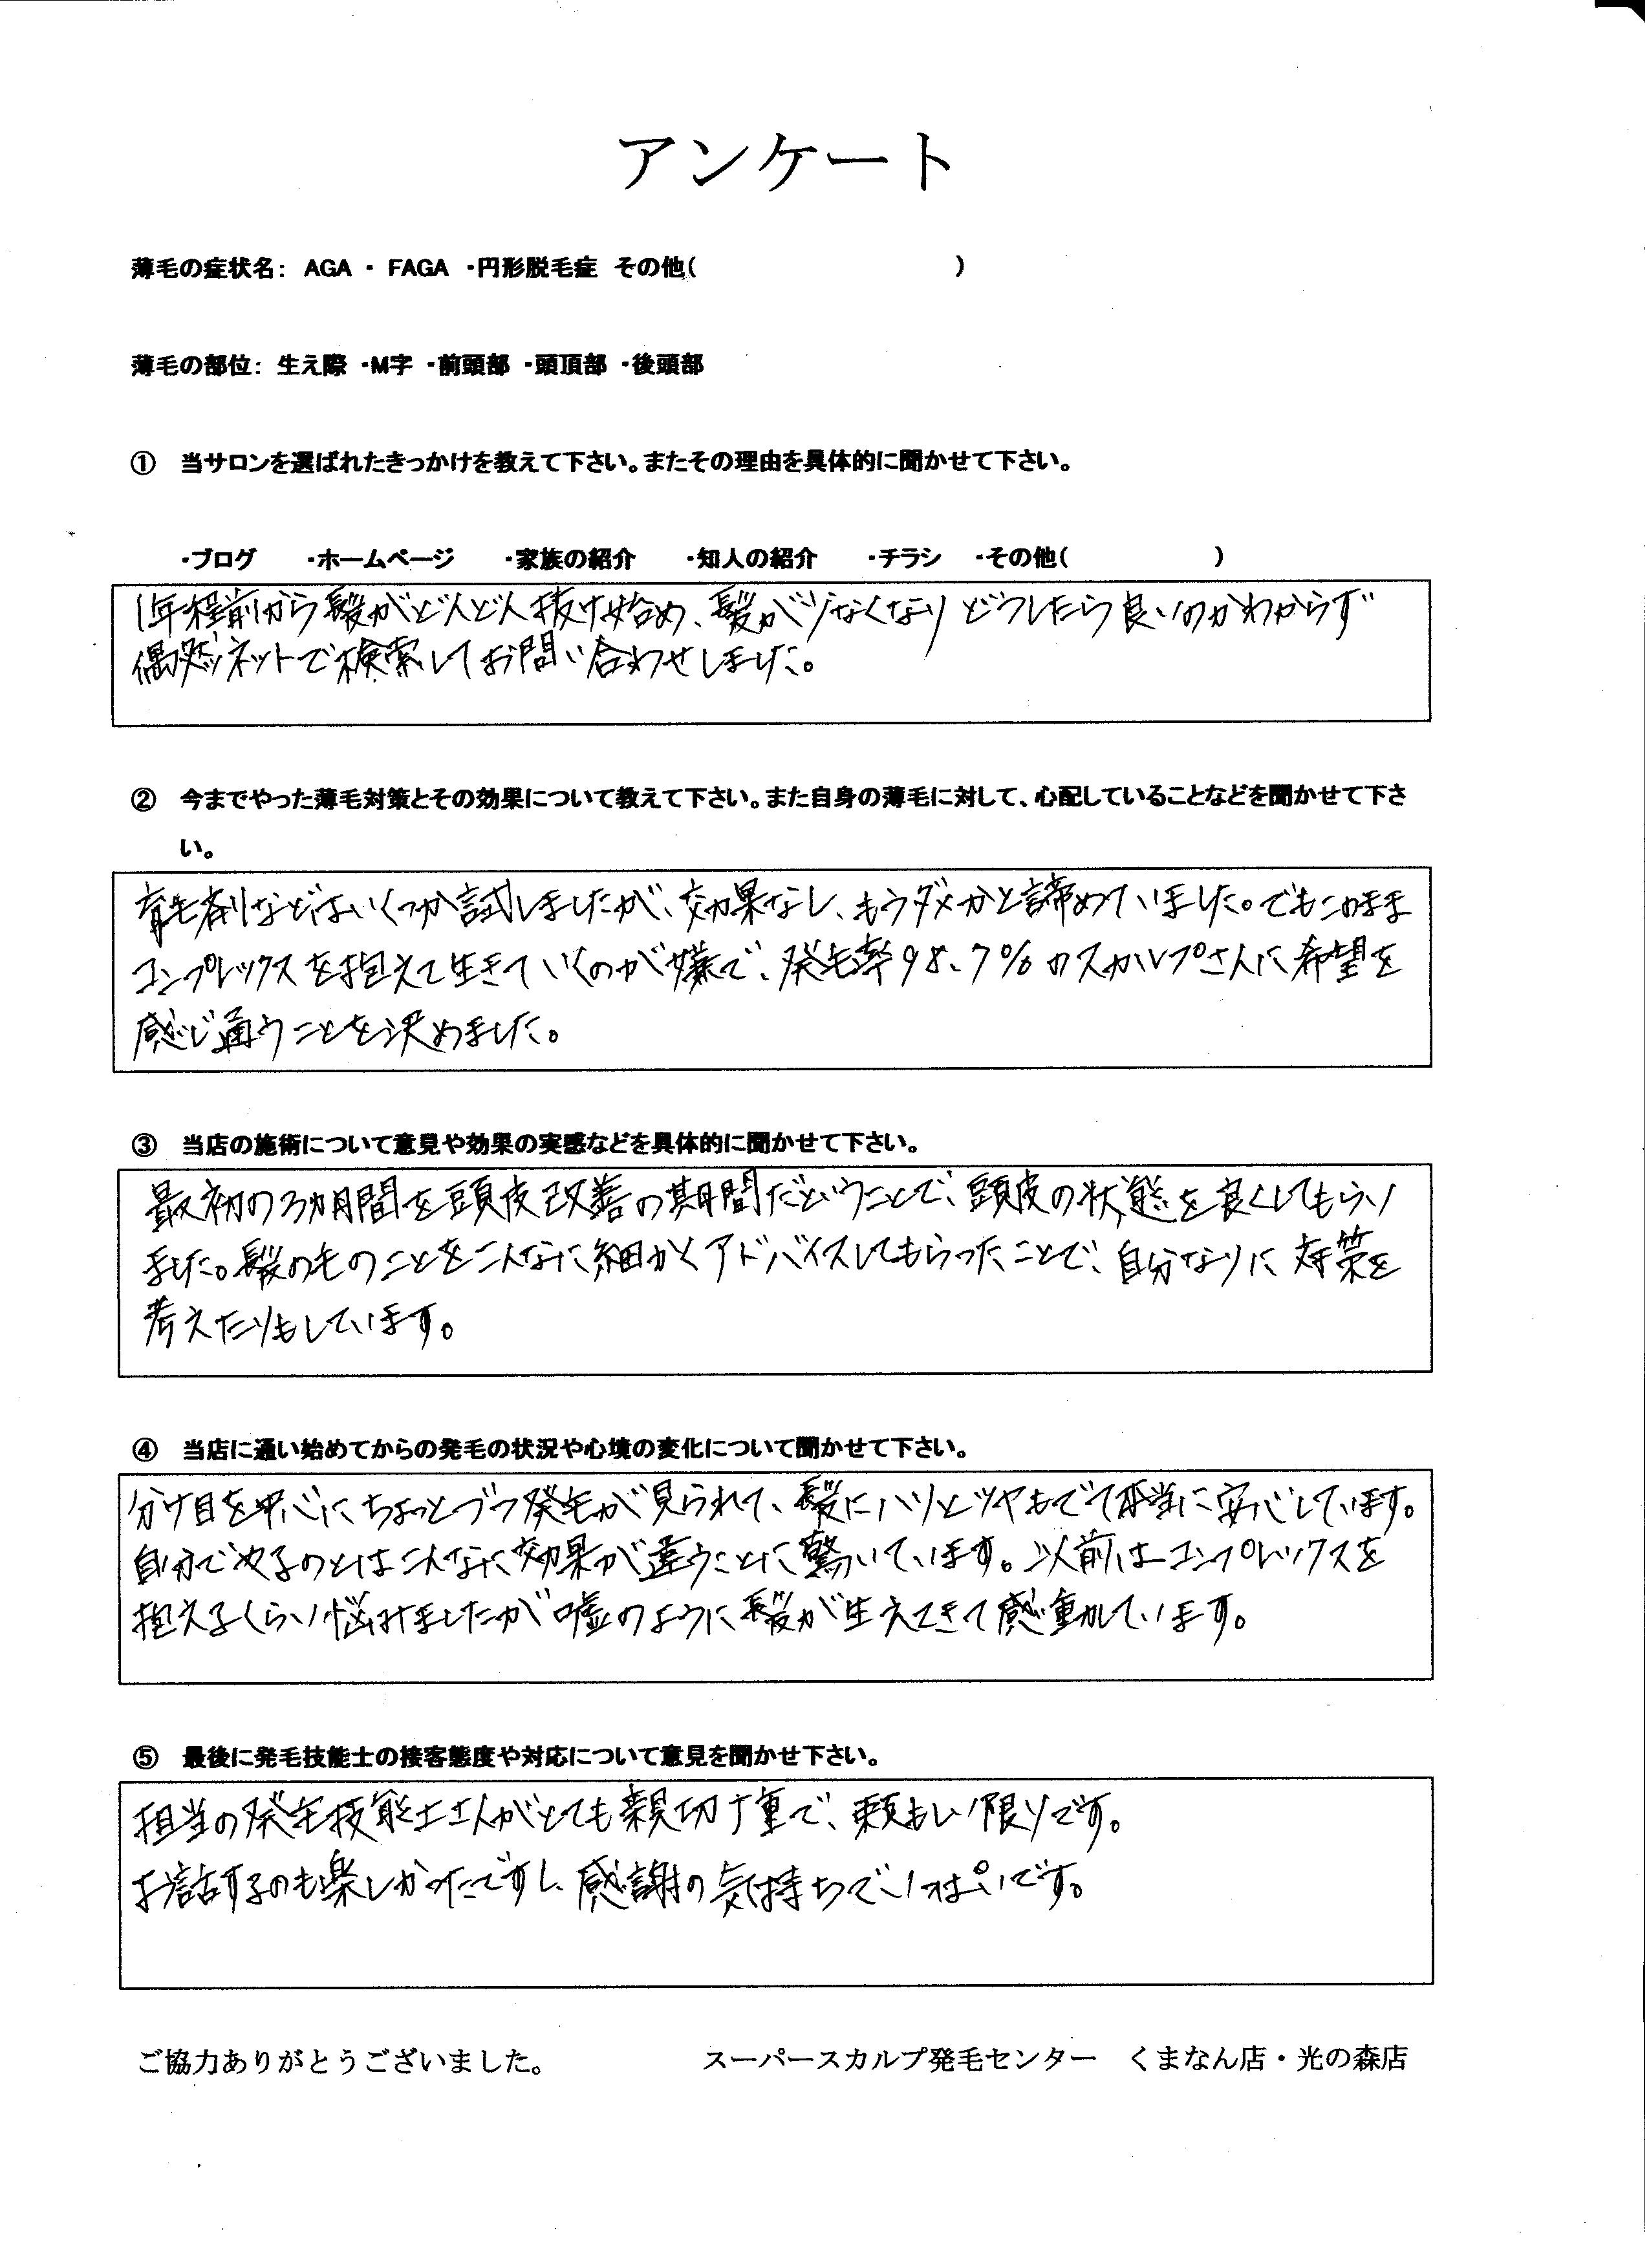 アンケート
薄毛の症状名： AGA ・ FAGA ・円形脱毛症 その他（ ）
薄毛の部位： 生え際 ・M字 ・前頭部 ・頭頂部 ・後頭部
① 当サロンを選ばれたきっかけを教えて下さい。またその理由を具体的に聞かせて下さい。
・ブログ ・ホームページ ・家族の紹介 ・知人の紹介 ・チラシ ・その他（ ）
1年程前から髪がどんどん抜け始め、髪が少なくなりどうしたら良いのかわからず
偶然ネットで検索してお問い合わせしました。
② 今までやった薄毛対策とその効果について教えて下さい。また自身の薄毛に対して、心配していることなどを聞かせて下さ
い。
育毛剤などはいくつか試しましたが、効果なし、もうダメかと諦めていました。でもこのまま
コンプレックスを抱えて生きていくのが嫌で、発毛率98.7%のスカルプさんに希望を
感じ通うことを決めました。
③ 当店の施術について意見や効果の実感などを具体的に聞かせて下さい。
最初の3ヵ月間を頭皮改善の期間だということで、頭皮の状態を良くしてもらい
ました。髪の毛のことをこんなに細かくアドバイスしてもらったことで、自分なりに対策を
考えたりもしています。
④ 当店に通い始めてからの発毛の状況や心境の変化について聞かせて下さい。
分け目を中心にちょっとづつ発毛が見られて、髪にハリとツヤもでて本当に安心しています。
自分でやるのとはこんなに効果が違うことに驚いています。以前はコンプレックスを
抱えるくらい悩みましたが嘘のように髪が生えてきて感動しています。
⑤ 最後に発毛技能士の接客態度や対応について意見を聞かせ下さい。
担当の発毛技能士さんがとても親切丁重で、頼もしい限りです。
お話するのも楽しかったですし、感謝の気持ちでいっぱいです。
ご協力ありがとうございました。 スーパースカルプ発毛センター くまなん店・光の森店